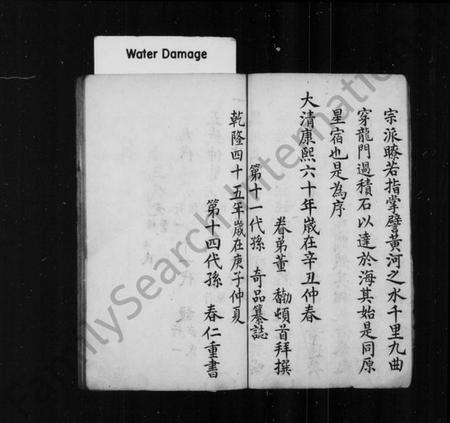 Water Damage
宗派瞭若指掌譬黄河之水千里九曲
穿龍門過積石以達於海其始是同原
星宿也是為序
大清康熙六十年歲在辛丑仲春
眷弟董 勷頓首拜撰
第十一代孫 奇品纂誌
乾隆四十五年歲在庚子仲夏
第十四代孫 春仁重書
FamilySearch International